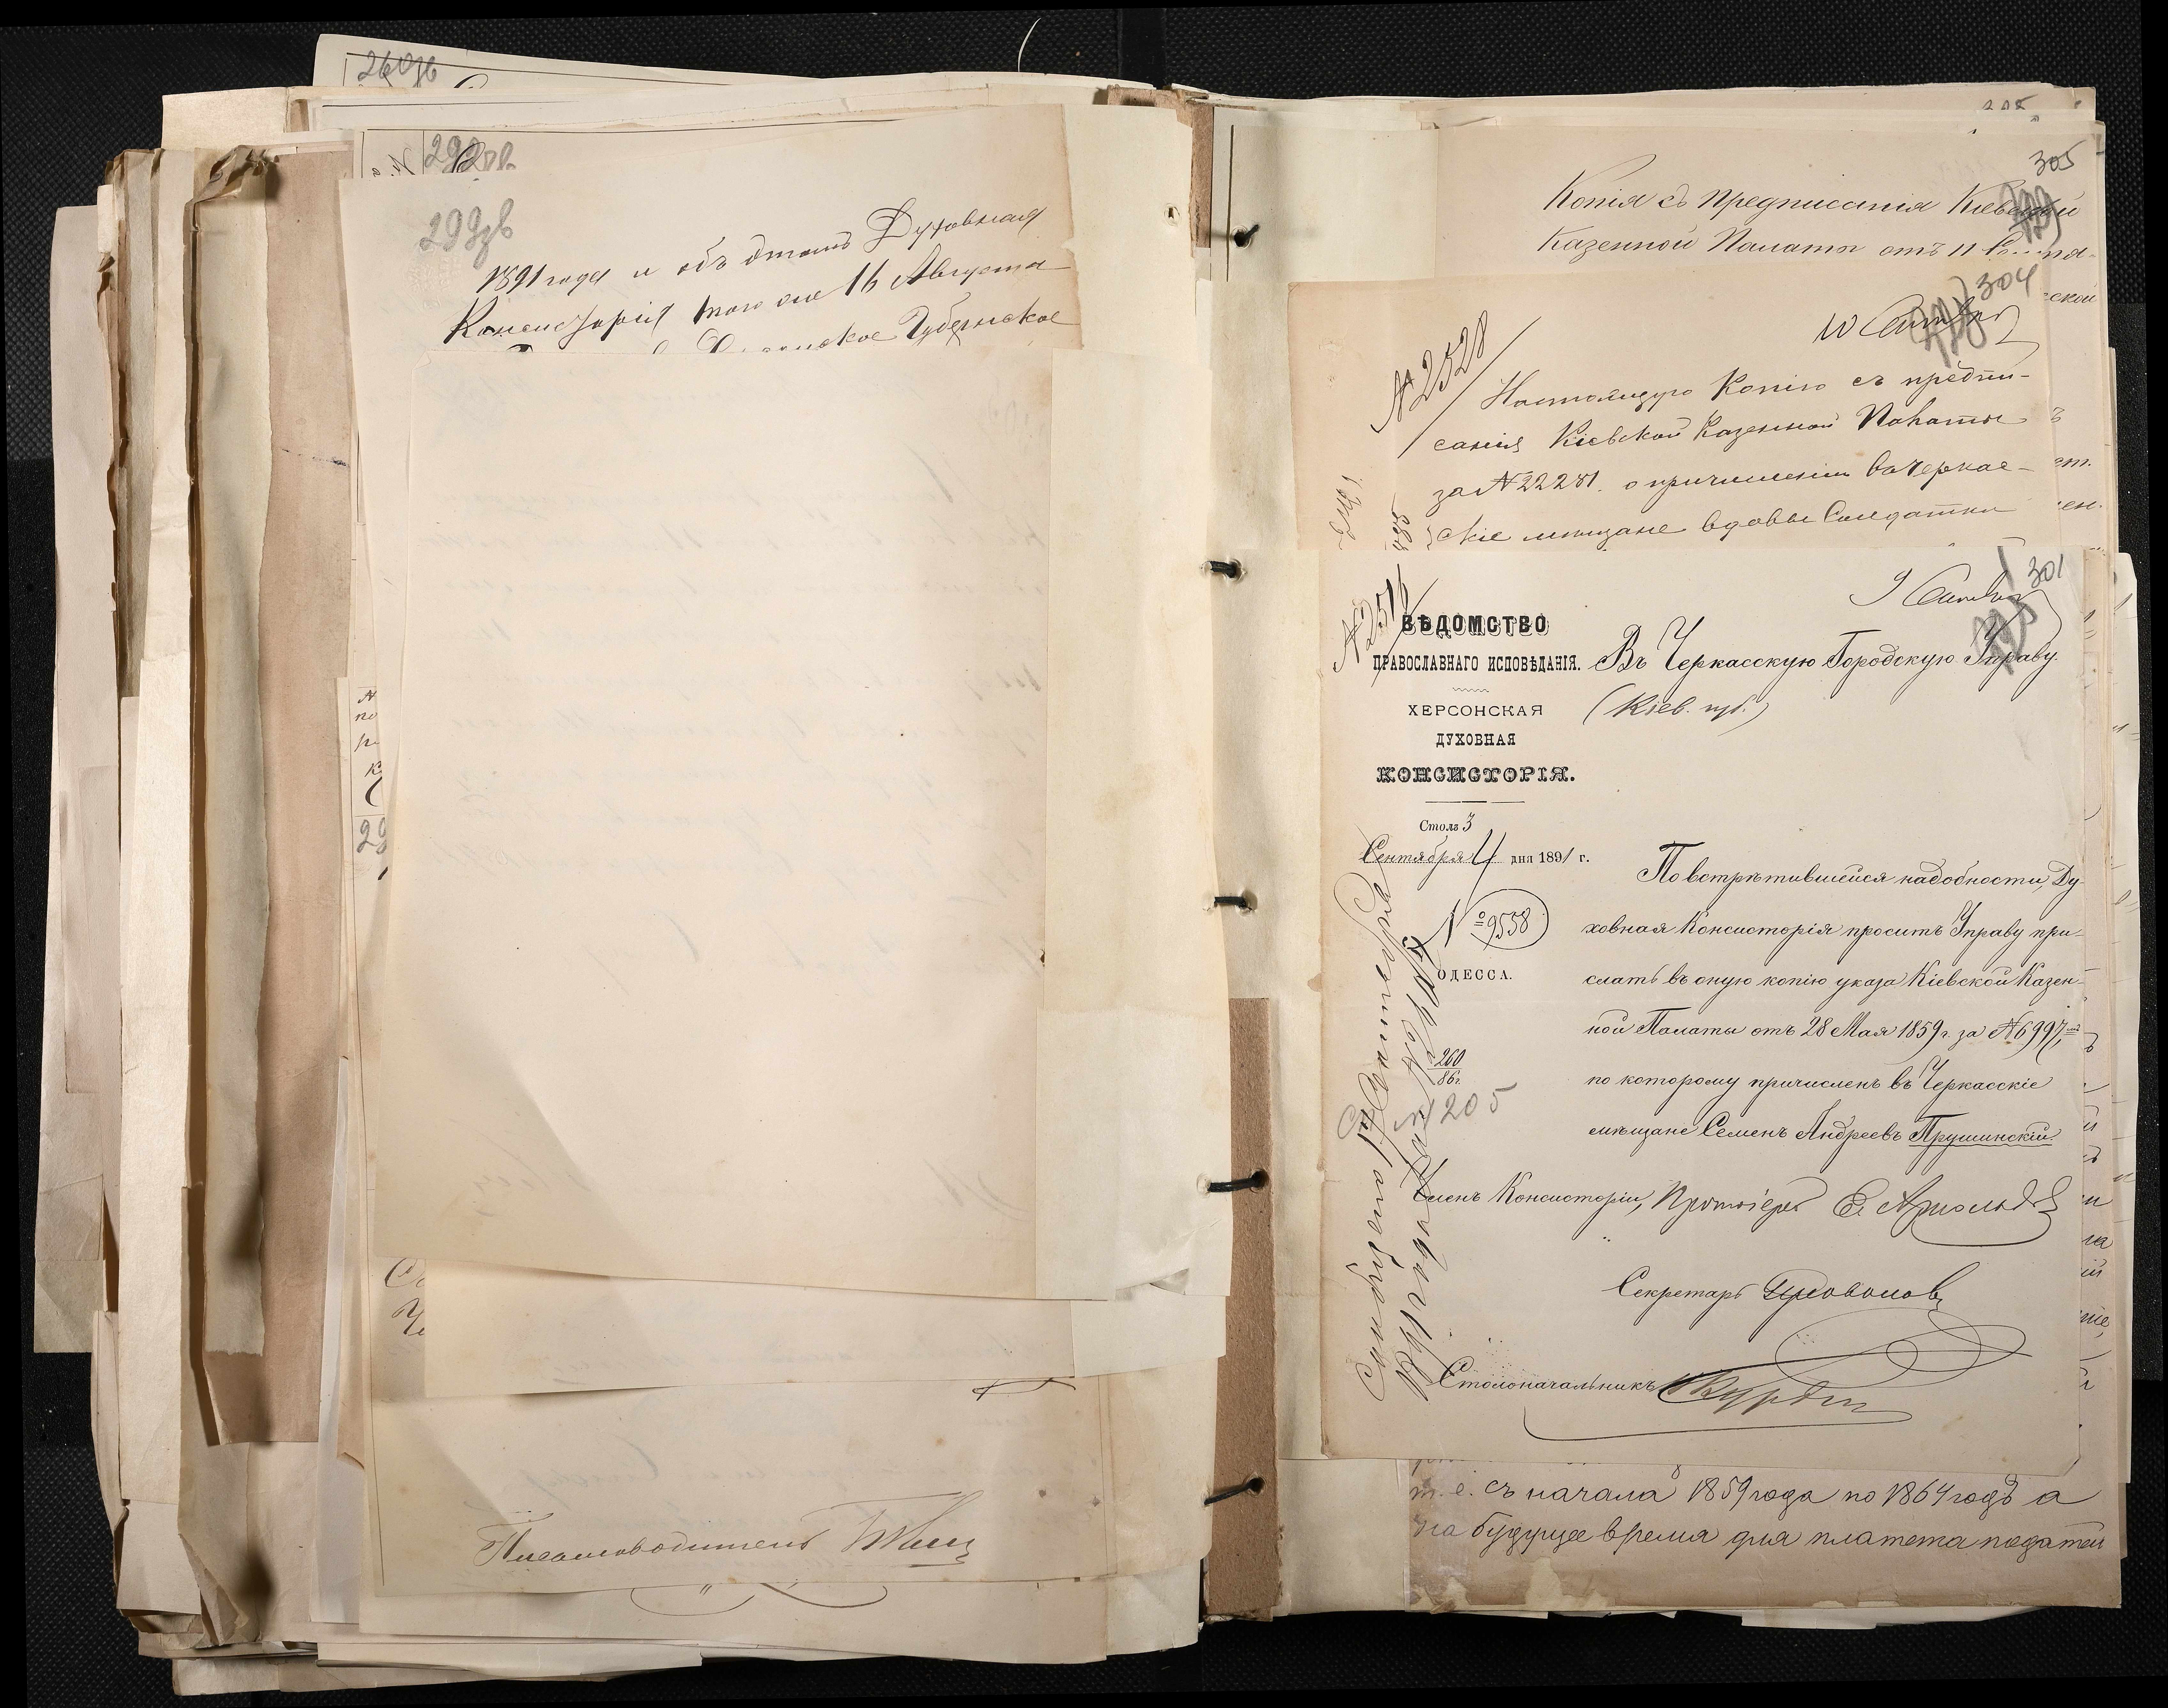 260зв
292зв
299зв
1891 года и объ этомъ Духовная
Консисторія того же 16 Августа
Губернское
29
Письмоводитель
305
Копія съ предписанія Кіевской
Казенной Палаты отъ 11
304
10 Сентяб
№ 2528
Настоящую Копію съ предпи-
санія Кіевской Казенной Палаты
за № 22281. о причисленіи въ Черкас-
скіе мѣщане вдовы Солдатки
301
9 Сентяб
№ 2516
ВѢДОМСТВО
ПРАВОСЛАВНАГО ИСПОВѢДАНІЯ.
ХЕРСОНСКАЯ
ДУХОВНАЯ
КОНСИСТОРІЯ.
Столъ 3
Сентября 4 дня 1891 г.
№ 9558
ОДЕССА.
260
86г.
205
Въ Черкасскую Городскую Управу.
(Кіев. губ.)
По встрѣтившейся надобности, Ду-
ховная Консисторія проситъ Управу при-
слать въ оную копію указа Кіевской Казен-
ной Палаты отъ 28 Мая 1859 г. за № 6997,
по которому причисленъ въ Черкасскіе
мѣщане Семенъ Андреевъ Прушинскій.
Членъ Консисторіи, Протоіерей
Секретарь
Столоначальникъ
Сообщено 17 Сентября
1891 года за №
т. е. съ начала 1859 года по 1864 годъ а
на будущее время для платежа податей